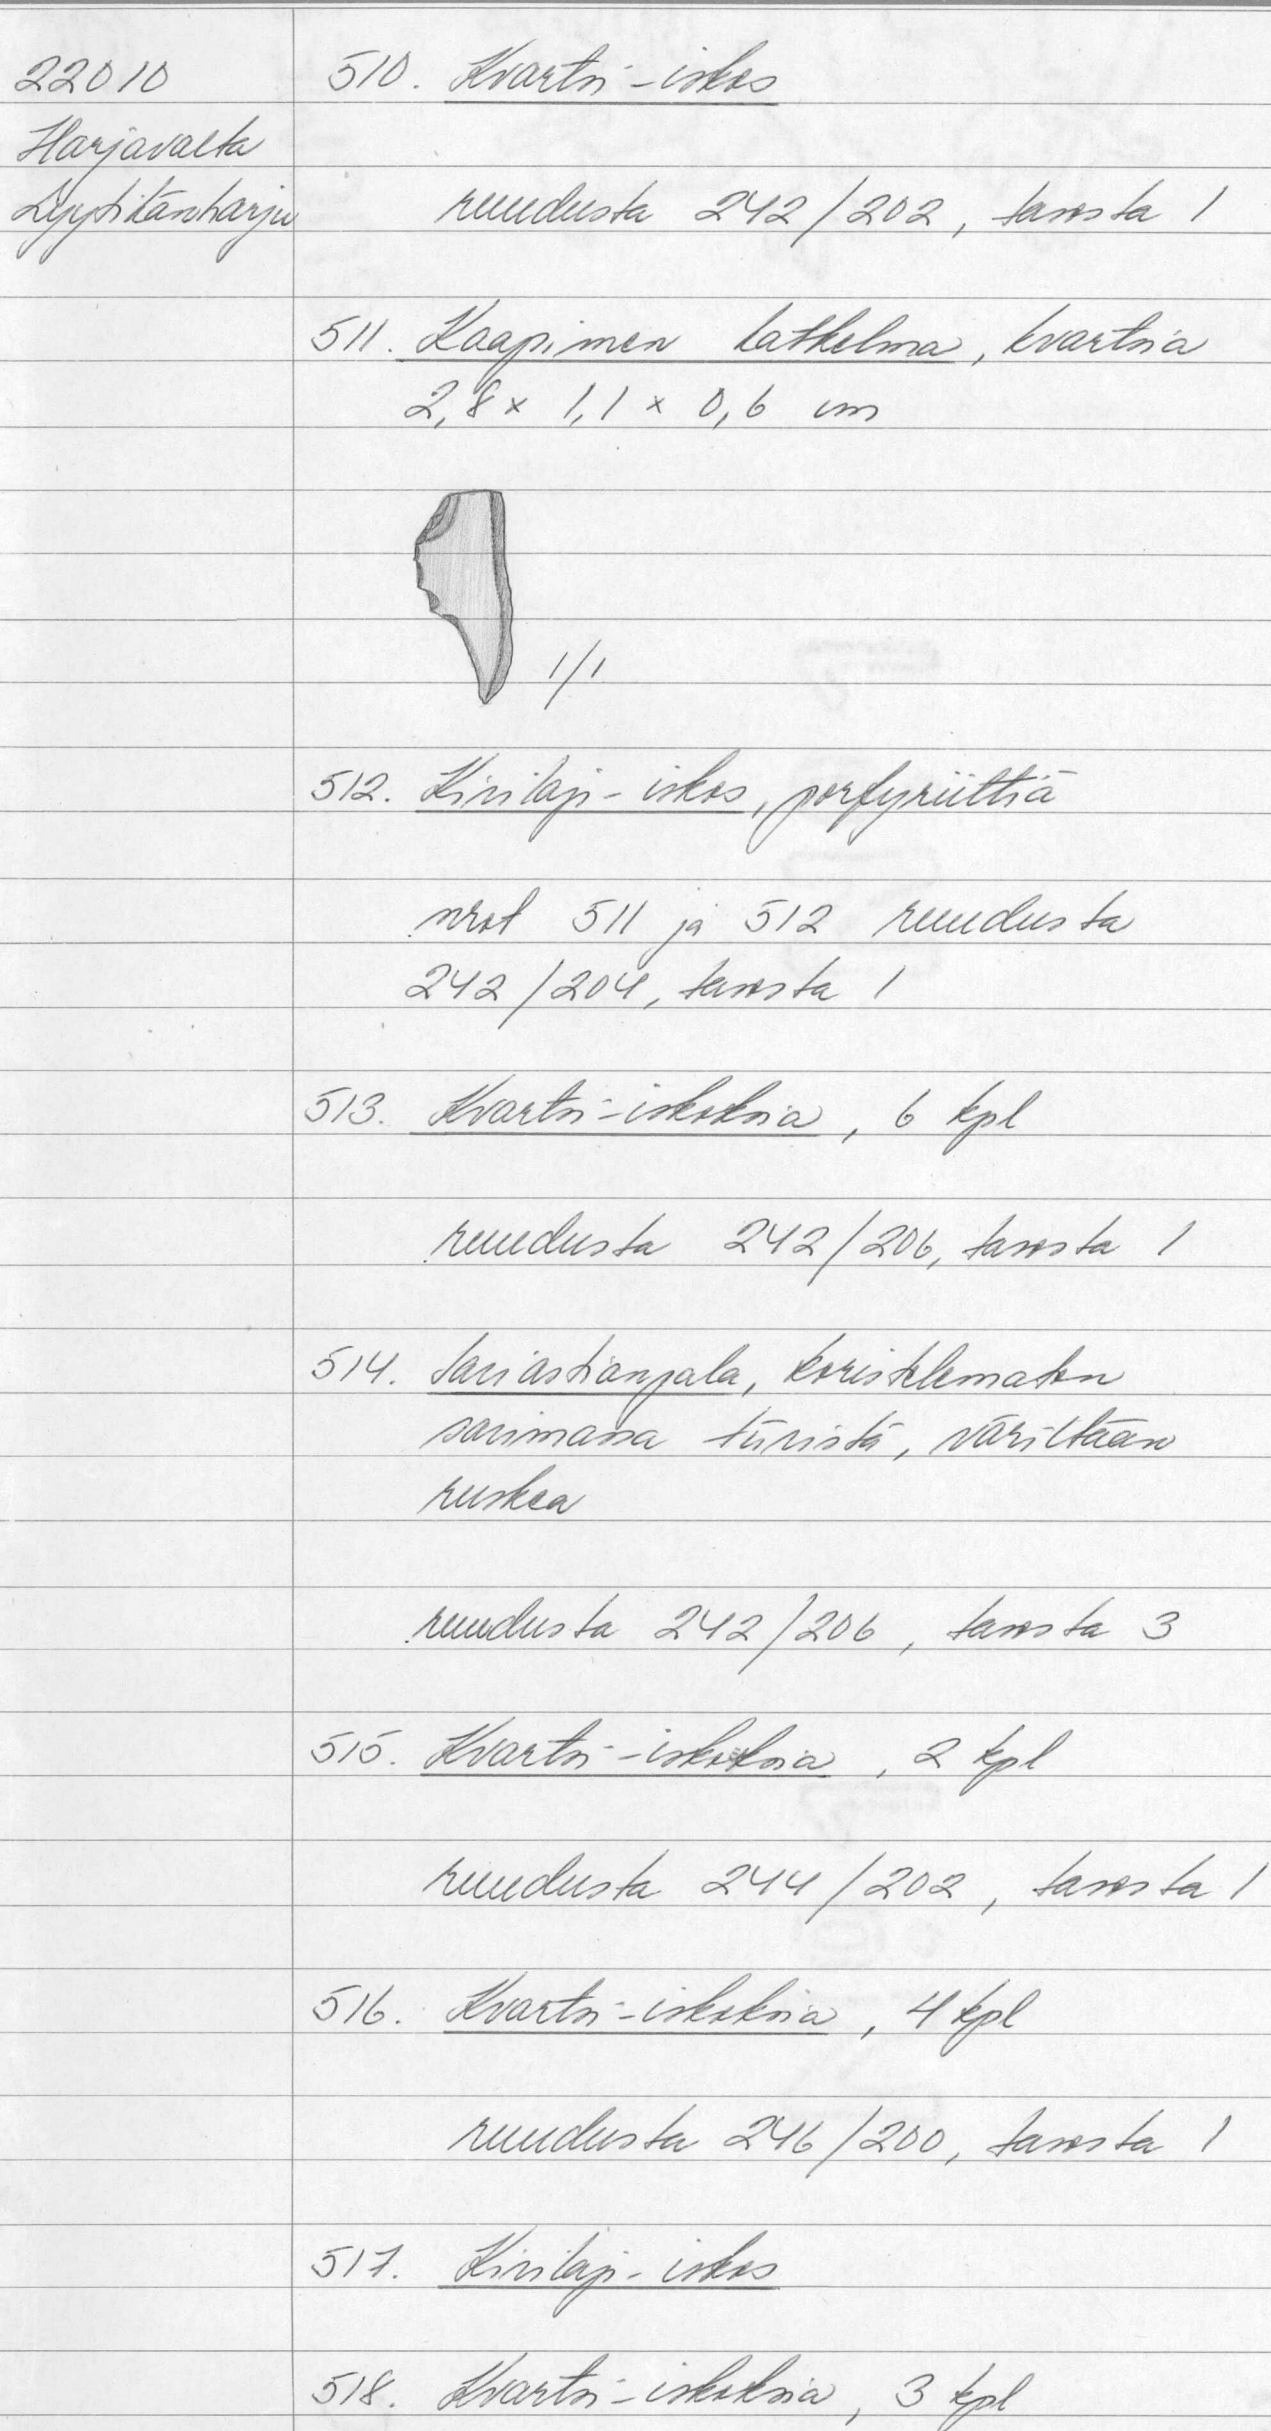 22010
Harjavalta
Lyytikänharju
510. Kvartsi-iskos
ruudusta 242/202, tasosta 1
511. Kaapimen katkelma, kvartsia
2,8 x 1,1 x 0,6 cm
1/1
512. Kivilaji-iskos, porfyriittiä
nrot 511 ja 512 ruudusta
242/204, tasosta 1
513. Kvartsi-iskoksia, 6 kpl
ruudusta 242/206, tasosta 1
514. Saviastianpala, koristelematon
savimassa tiivistä, väriltään
ruskea
ruudusta 242/206, tasosta 3
515. Kvartsi-iskoksia, 2 kpl
ruudusta 244/202, tasosta 1
516. Kvartsi-iskoksia, 4 kpl
ruudusta 246/200, tasosta 1
517. Kivilaji-iskos
518. Kvartsi-iskoksia, 3 kpl